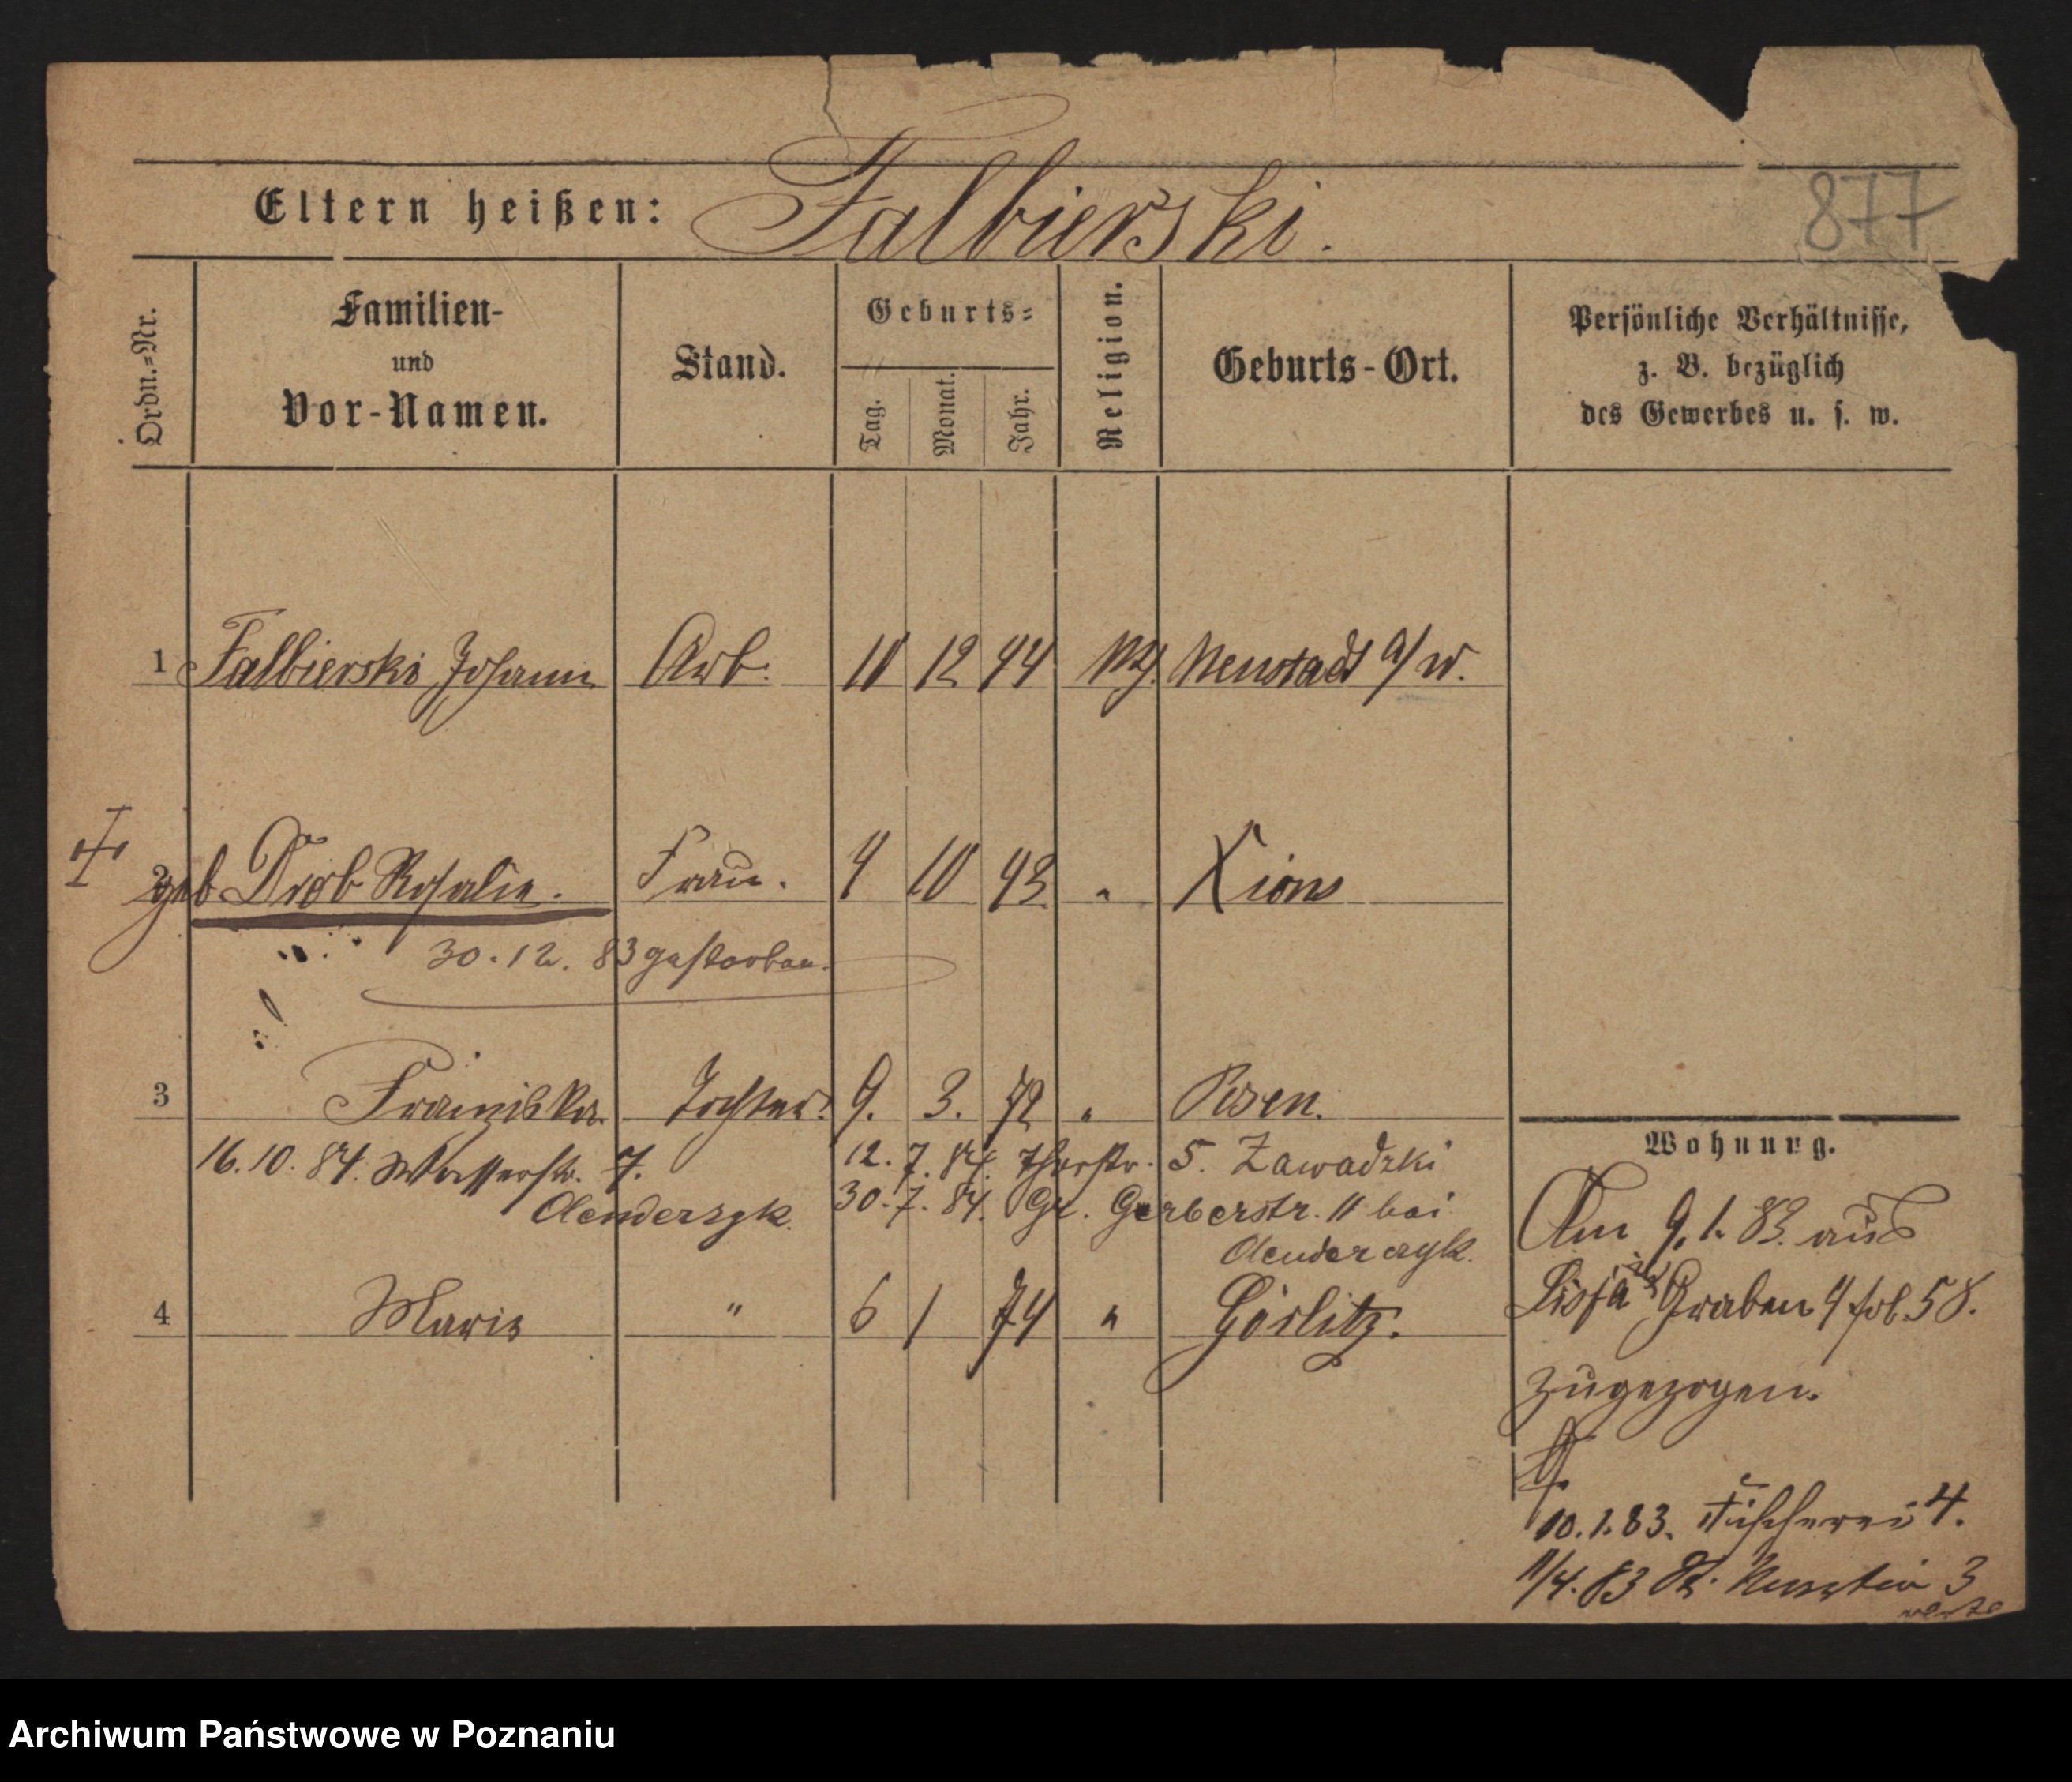 877
Eltern heißen: Falbierski.
Ordn.=Nr.
Familien-
und
Vor-Namen.
Stand.
Geburts=
Tag.
Monat.
Jahr.
Religion.
Geburts-Ort.
Persönliche Verhältnisse,
z. B. bezüglich
des Gewerbes u. s. w.
1 Falbierski Johann Arb. 10 12 44 Neustadt a/W.
2 geb Drob Rosalie. Frau. 4 10 43 " Xions
30.12.83 gestorben.
3 Franziska. Tochter. 9. 3. 72 " Posen.
16.10.84. Wasserstr. 7.
Olenderszyk.
12.7.84. Thorstr. 5. Zawadzki
30.7.84. Gr. Gerberstr. 11 bei
4 Maria " 6 1 74 " Görlitz.
Wohnung.
Am 9.1.83. aus
Graben 4 fol. 58.
zugezogen.
10.1.83. Fischerei 4.
11/4.83 3
Archiwum Państwowe w Poznaniu